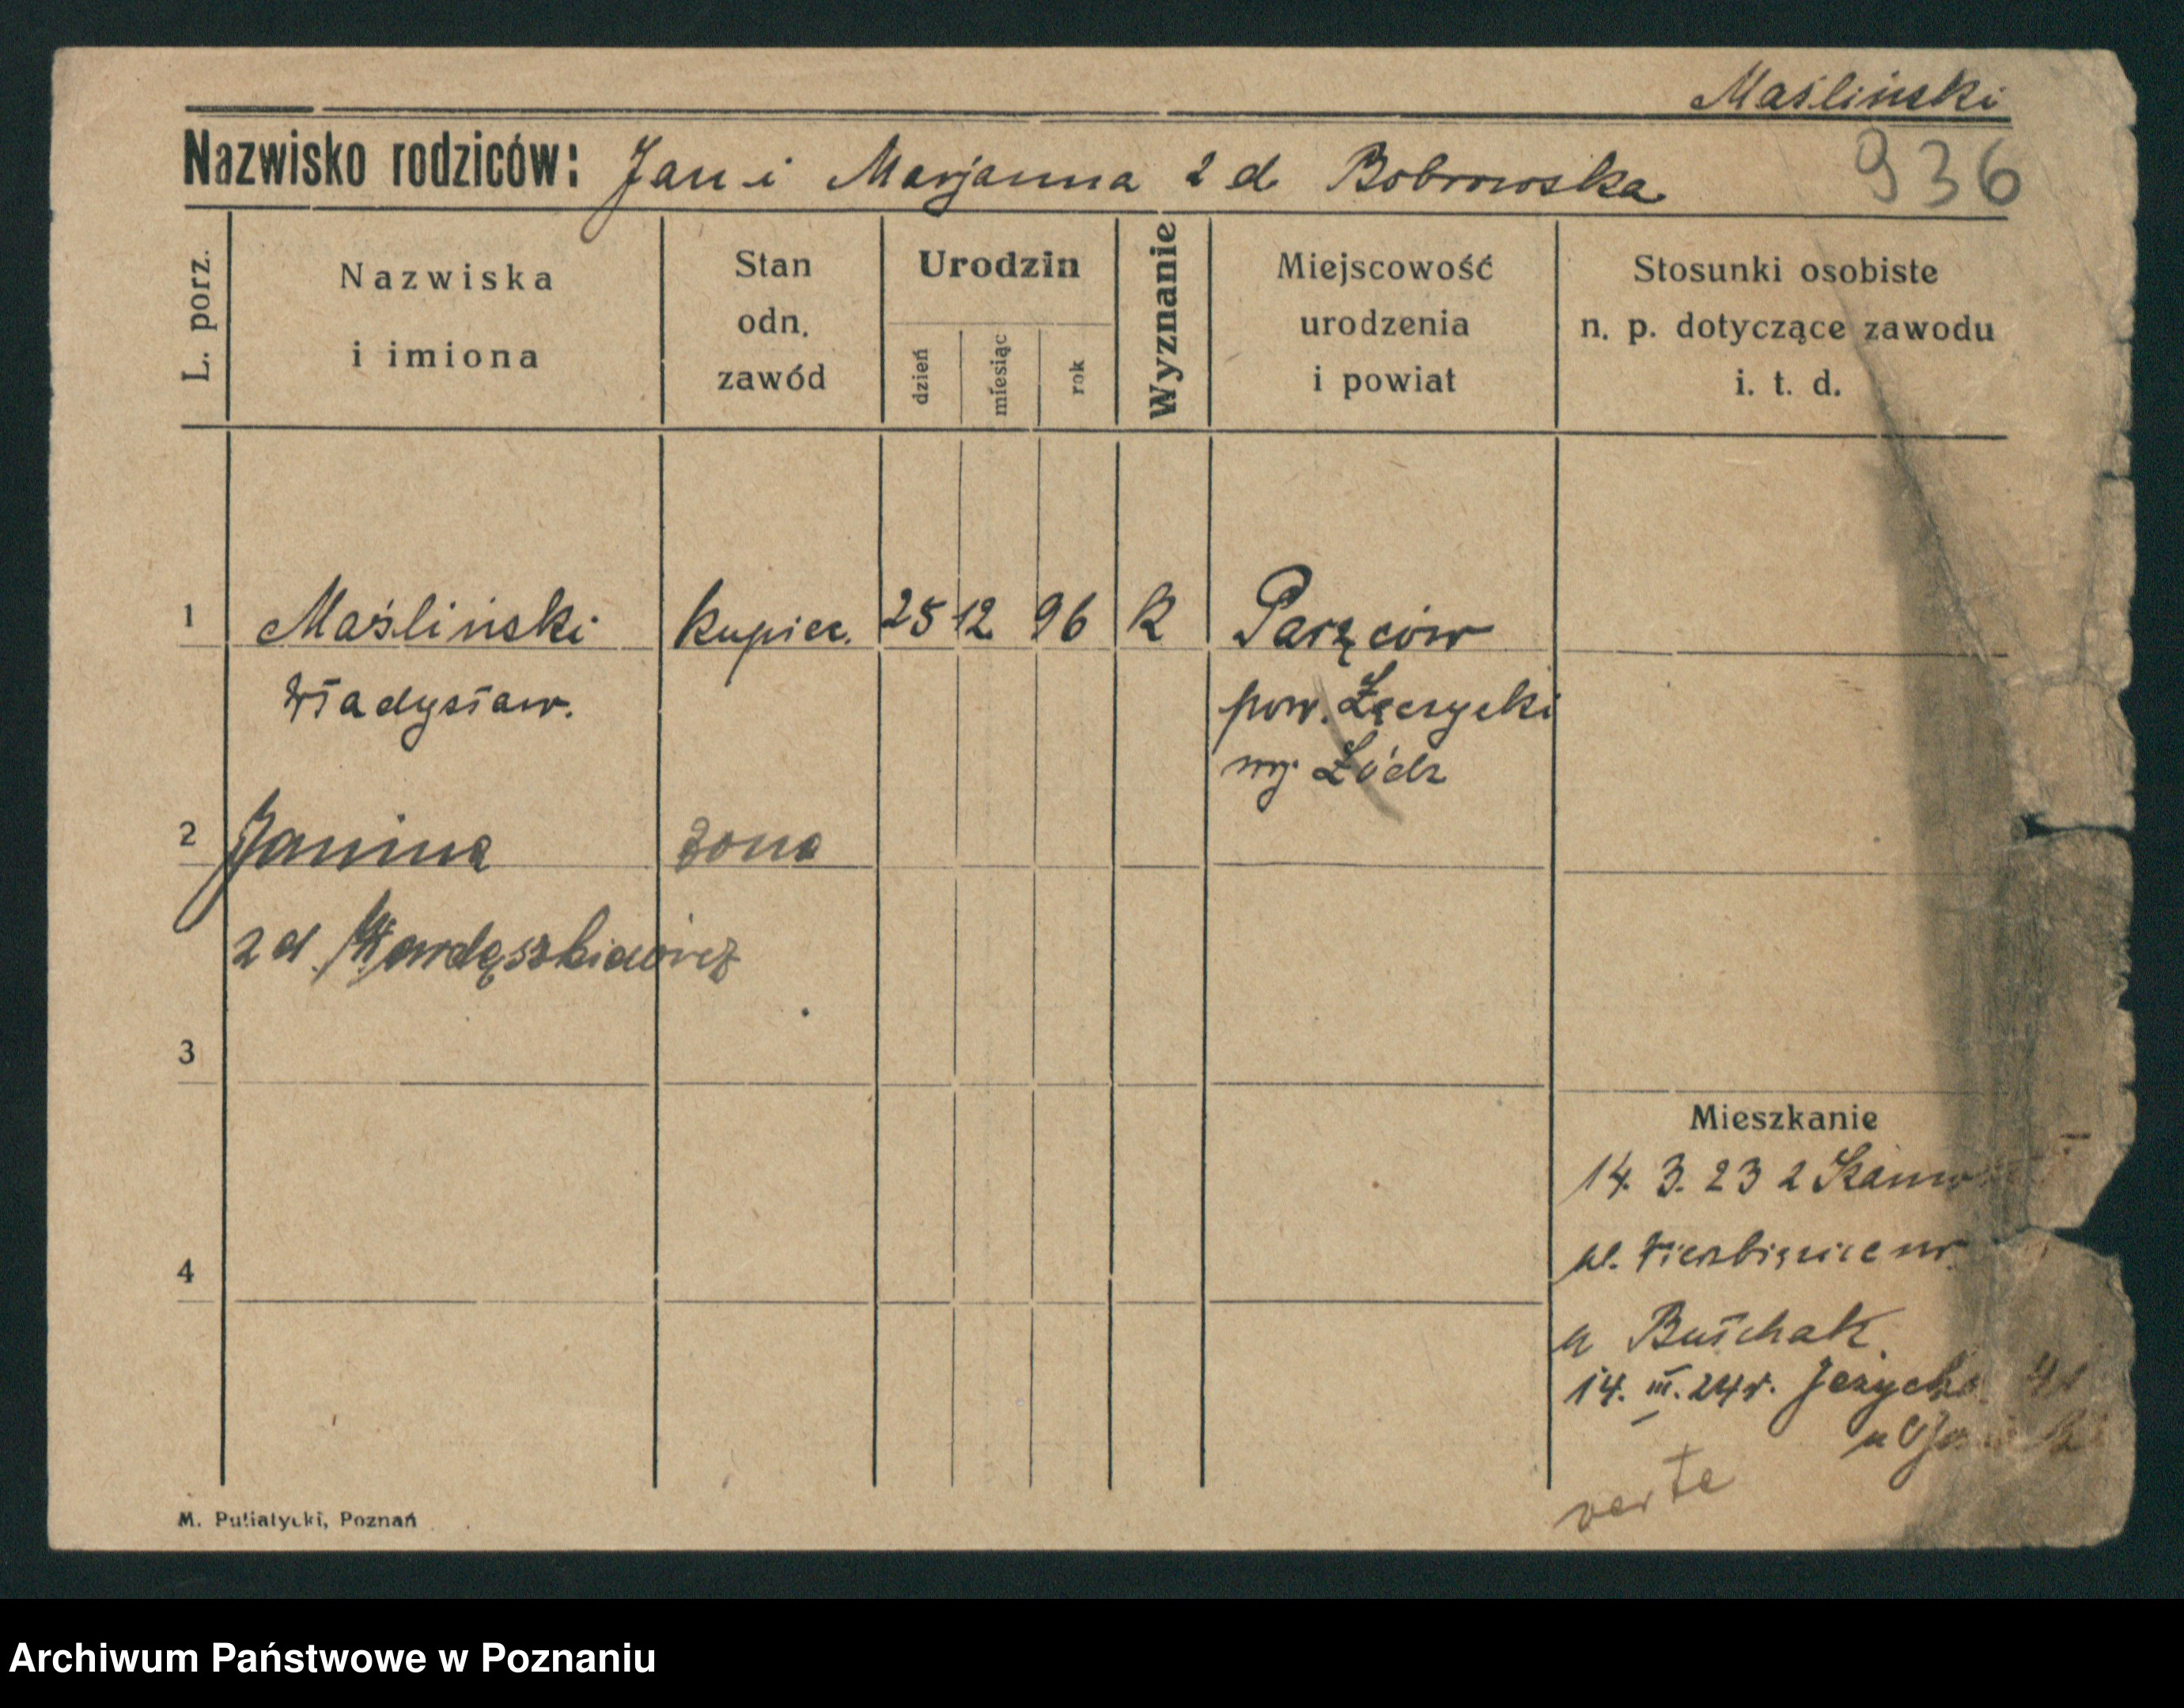 Maśliński
Nazwisko rodziców: Jan i Marjanna z d. Bobrowska
936
L. porz.
Nazwiska
i imiona
Stan
odn.
zawód
Urodzin
dzień
miesiąc
rok
Wyznanie
Miejscowość
urodzenia
i powiat
Stosunki osobiste
n. p. dotyczące zawodu
i. t. d.
1 Maśliński kupiec. 25 12 96 K
Władysław. pow. Łęczycki
Łódz
2 Janina żona
z d.
3
Mieszkanie
14. 3. 23 z
4
ul.
u
14. III. 24 r.
u
verte
M. Putiatycki, Poznań
Archiwum Państwowe w Poznaniu